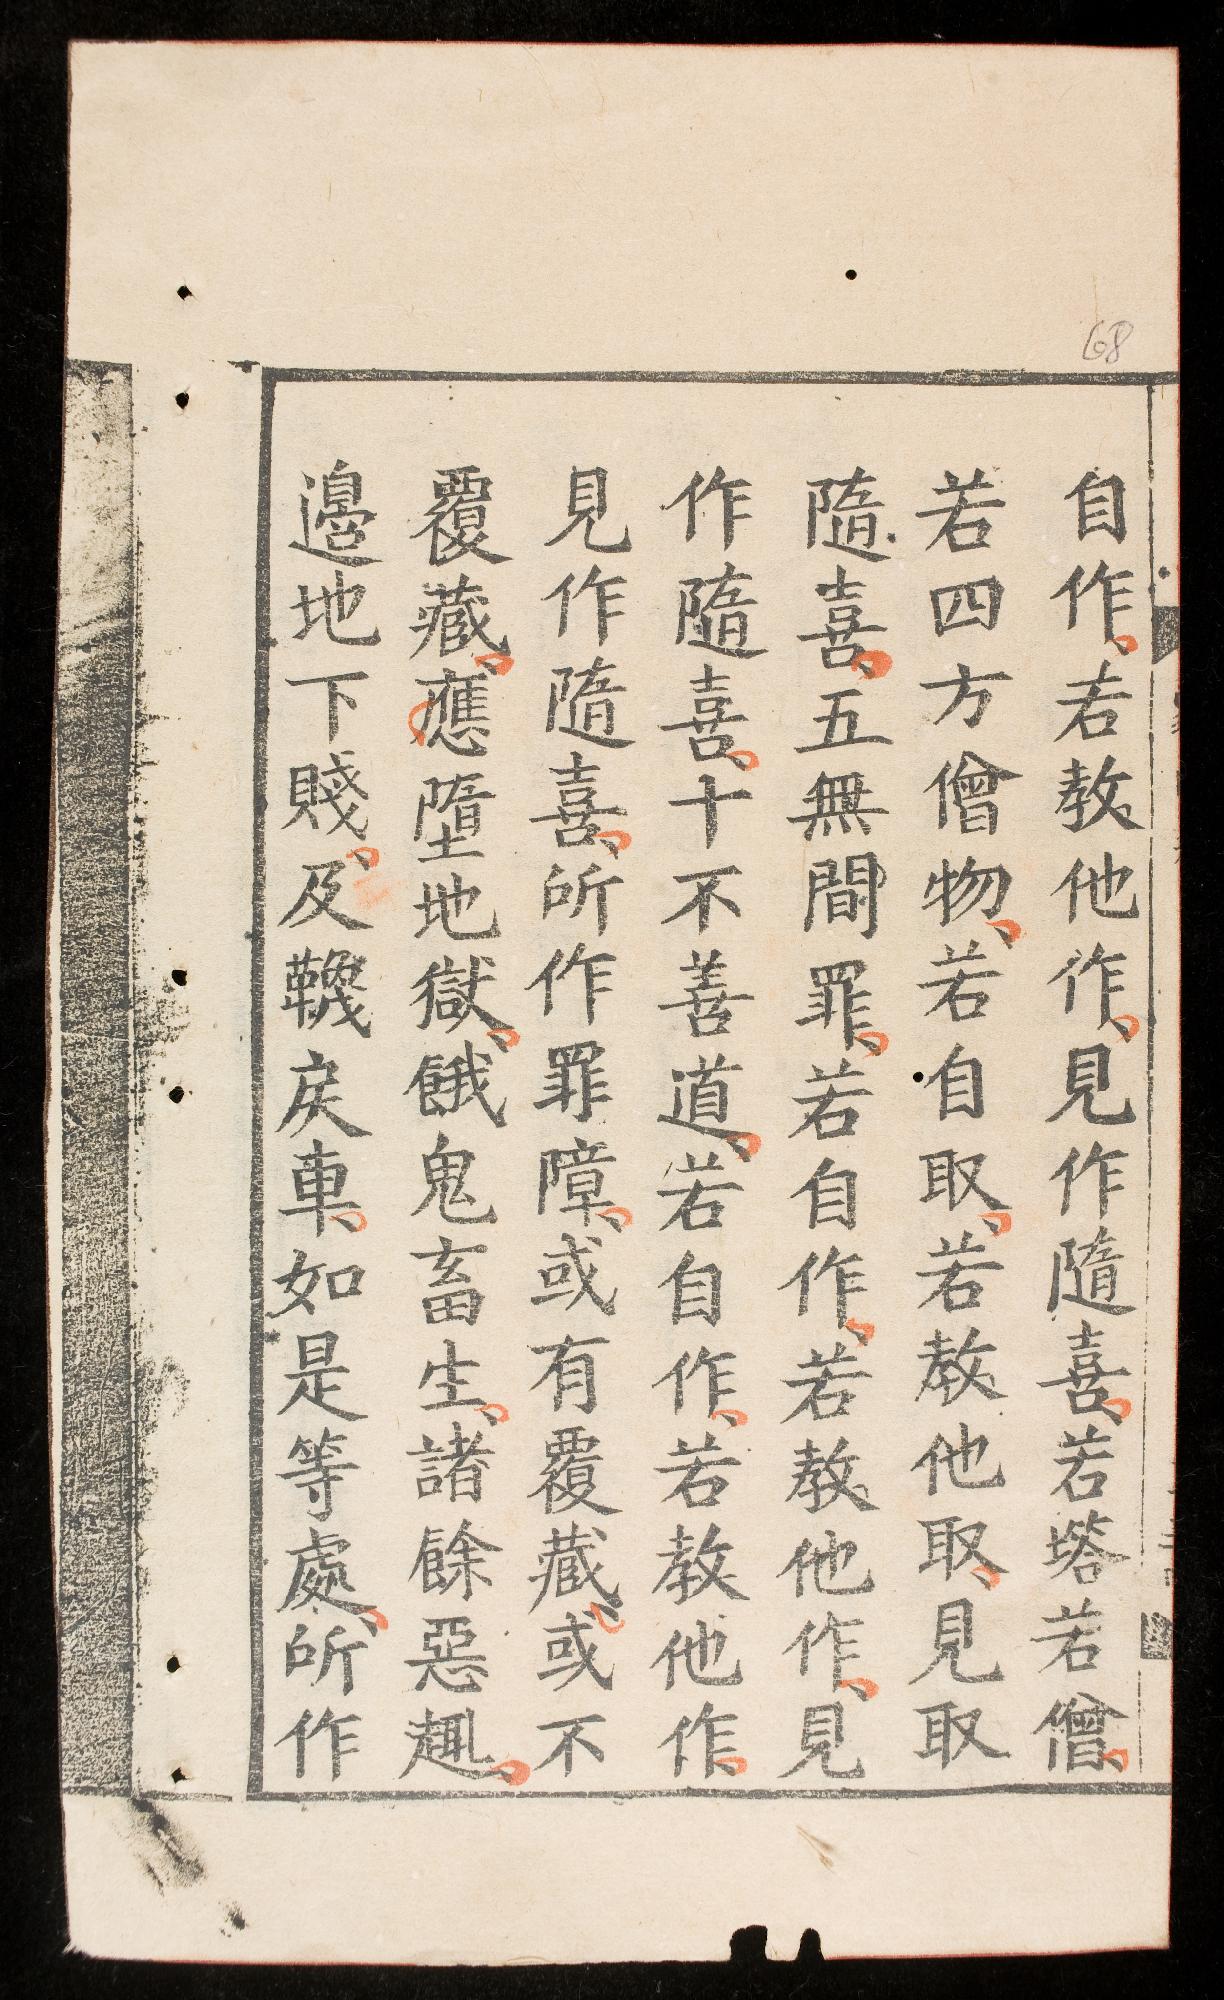 68
自作、若教他作、見作隨喜、若塔若僧、
若四方僧物、若自取、若教他取、見取
隨喜、五無間罪、若自作、若教他作、見
作隨喜、十不善道、若自作、若教他作、
見作隨喜、所作罪障、或有覆藏、或不
覆藏、應墮地獄、餓鬼畜生、諸餘惡趣、
邊地下賤、及韈戾車、如是等處、所作